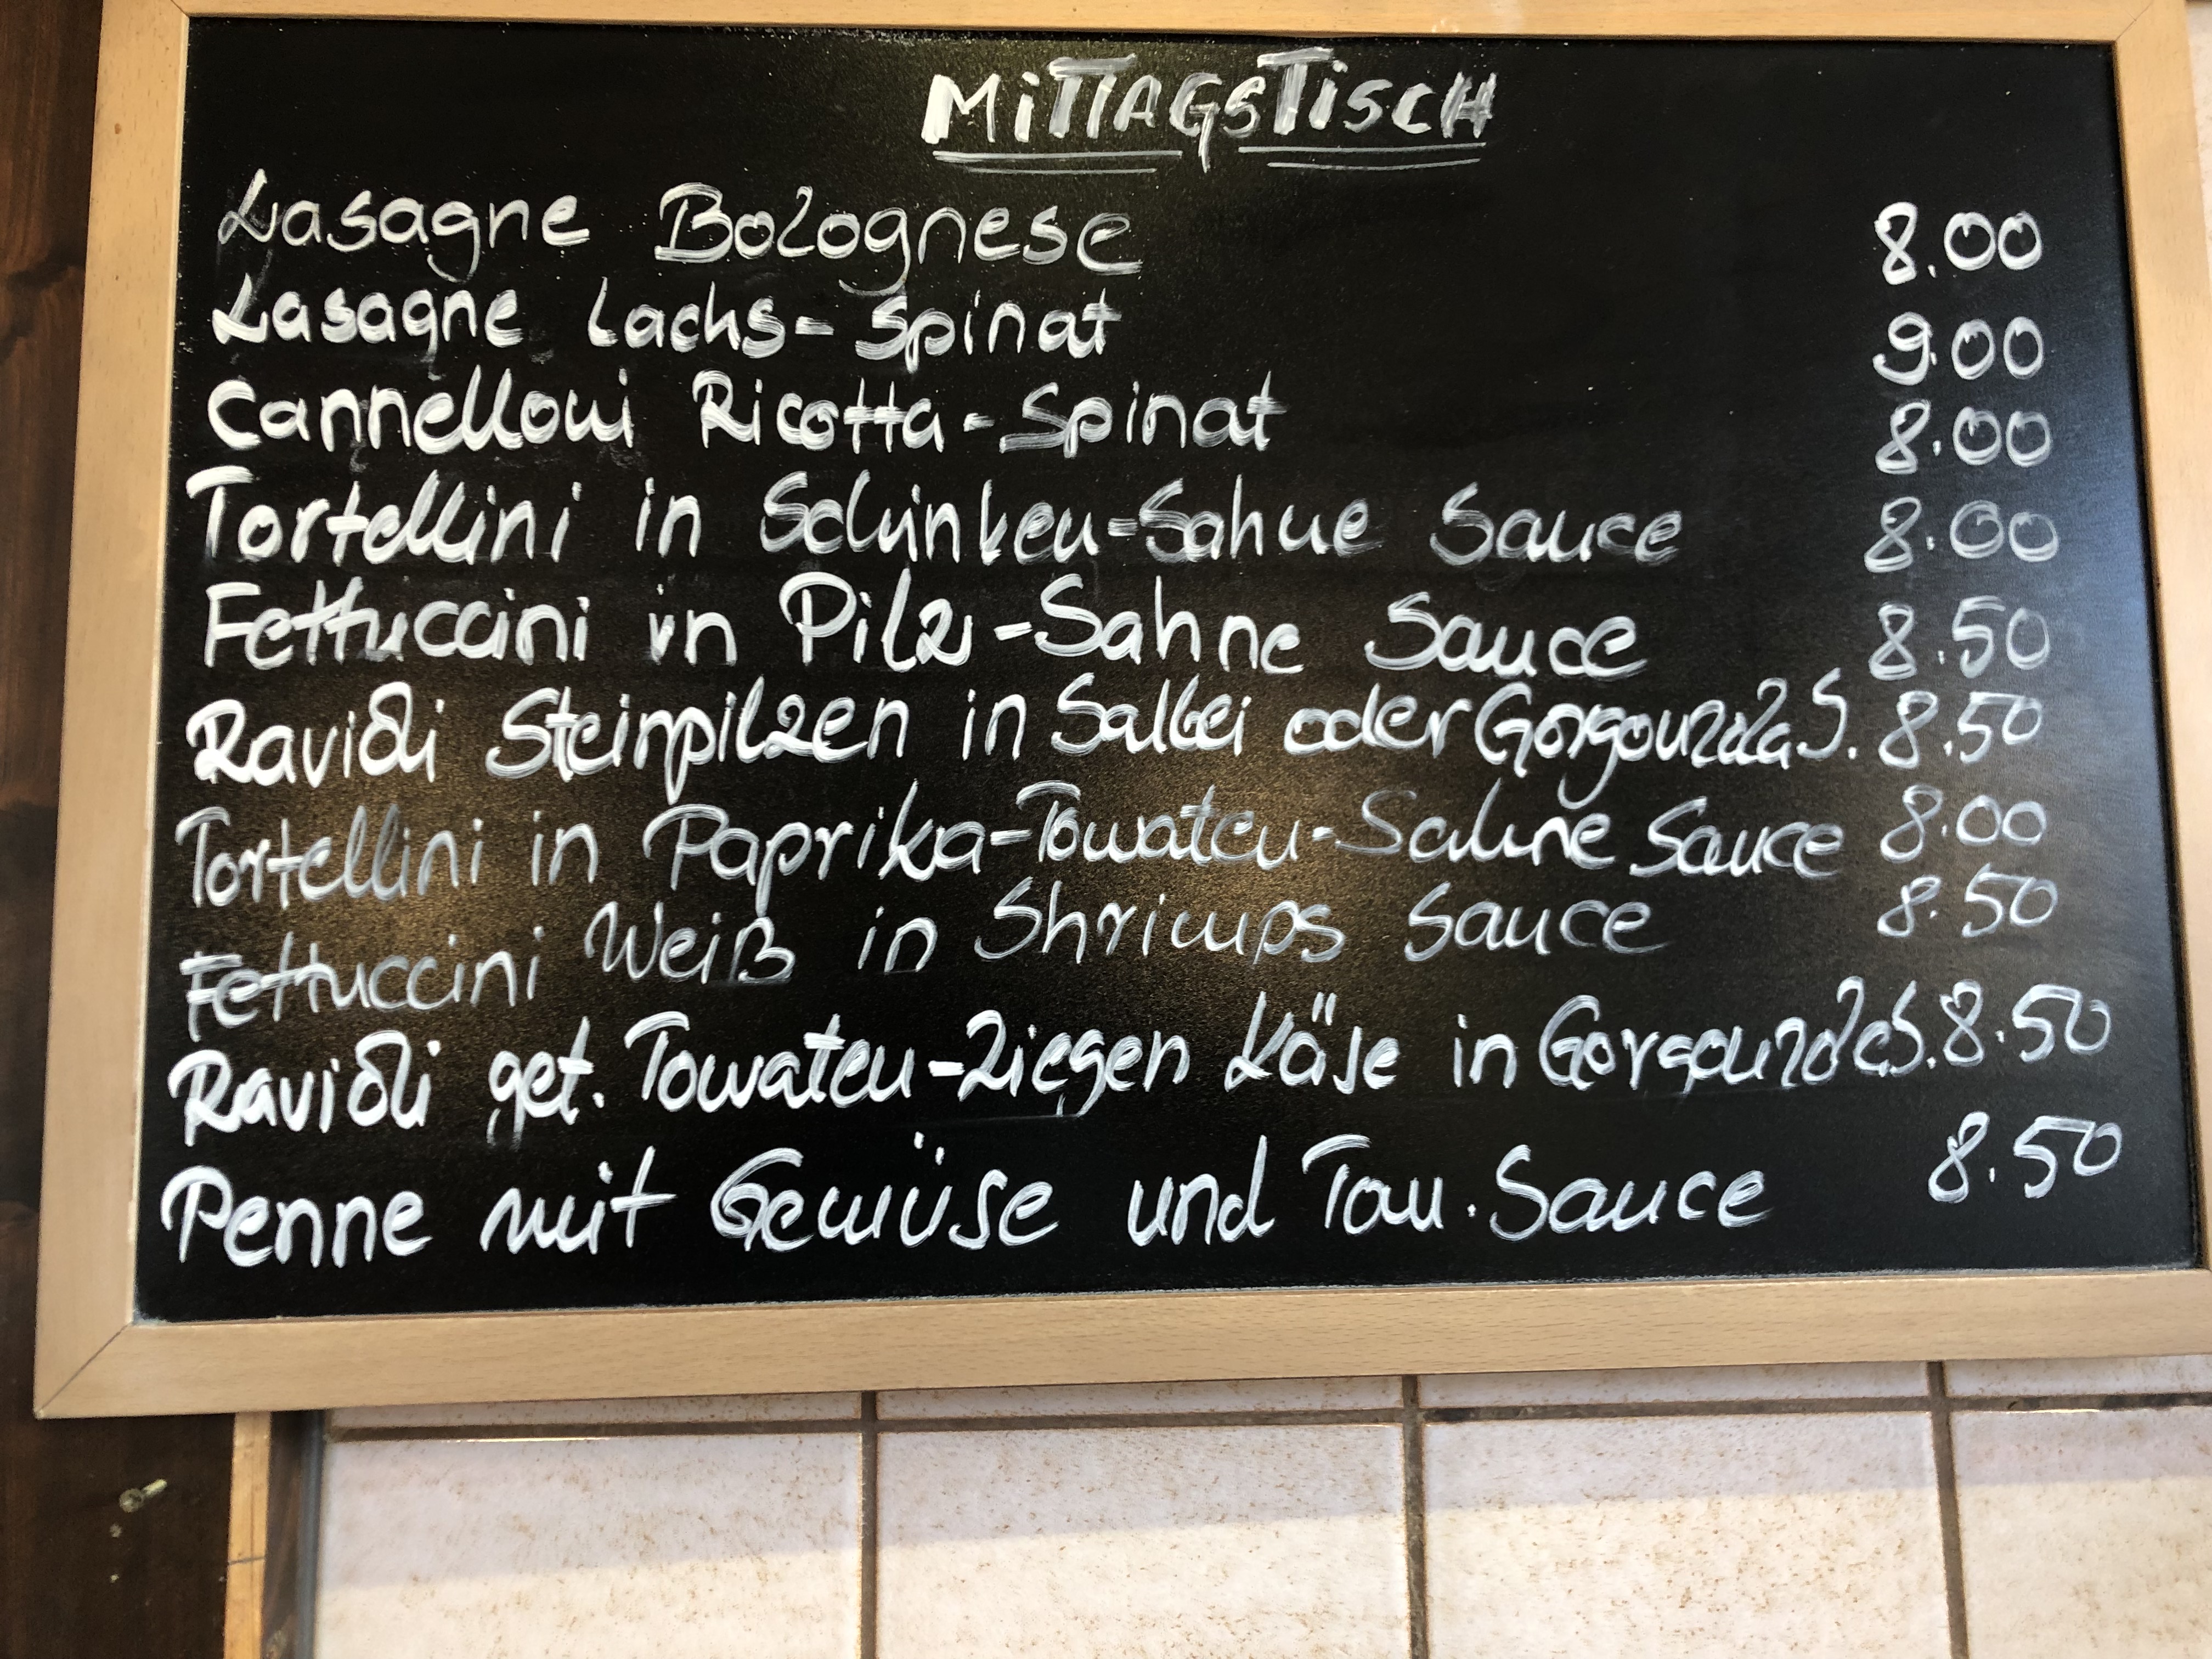 MiTTAGSTiSCH
Lasagne Bolognese 8.00
Lasagne Lachs-Spinat 9.00
Cannelloni Ricotta-Spinat 8.00
Tortellini in Schinken-Sahne Sauce 8.00
Fettuccini in Pilz-Sahne Sauce 8.50
Ravioli Steinpilzen in Salbei oder Gorgonzola S. 8.50
Tortellini in Paprika-Tomaten-Sahne Sauce 8.00
Fettuccini Weiß in Shrimps Sauce 8.50
Ravioli get. Tomaten-Ziegen Käse in Gorgonzola S. 8.50
Penne mit Gemüse und Tom. Sauce 8.50